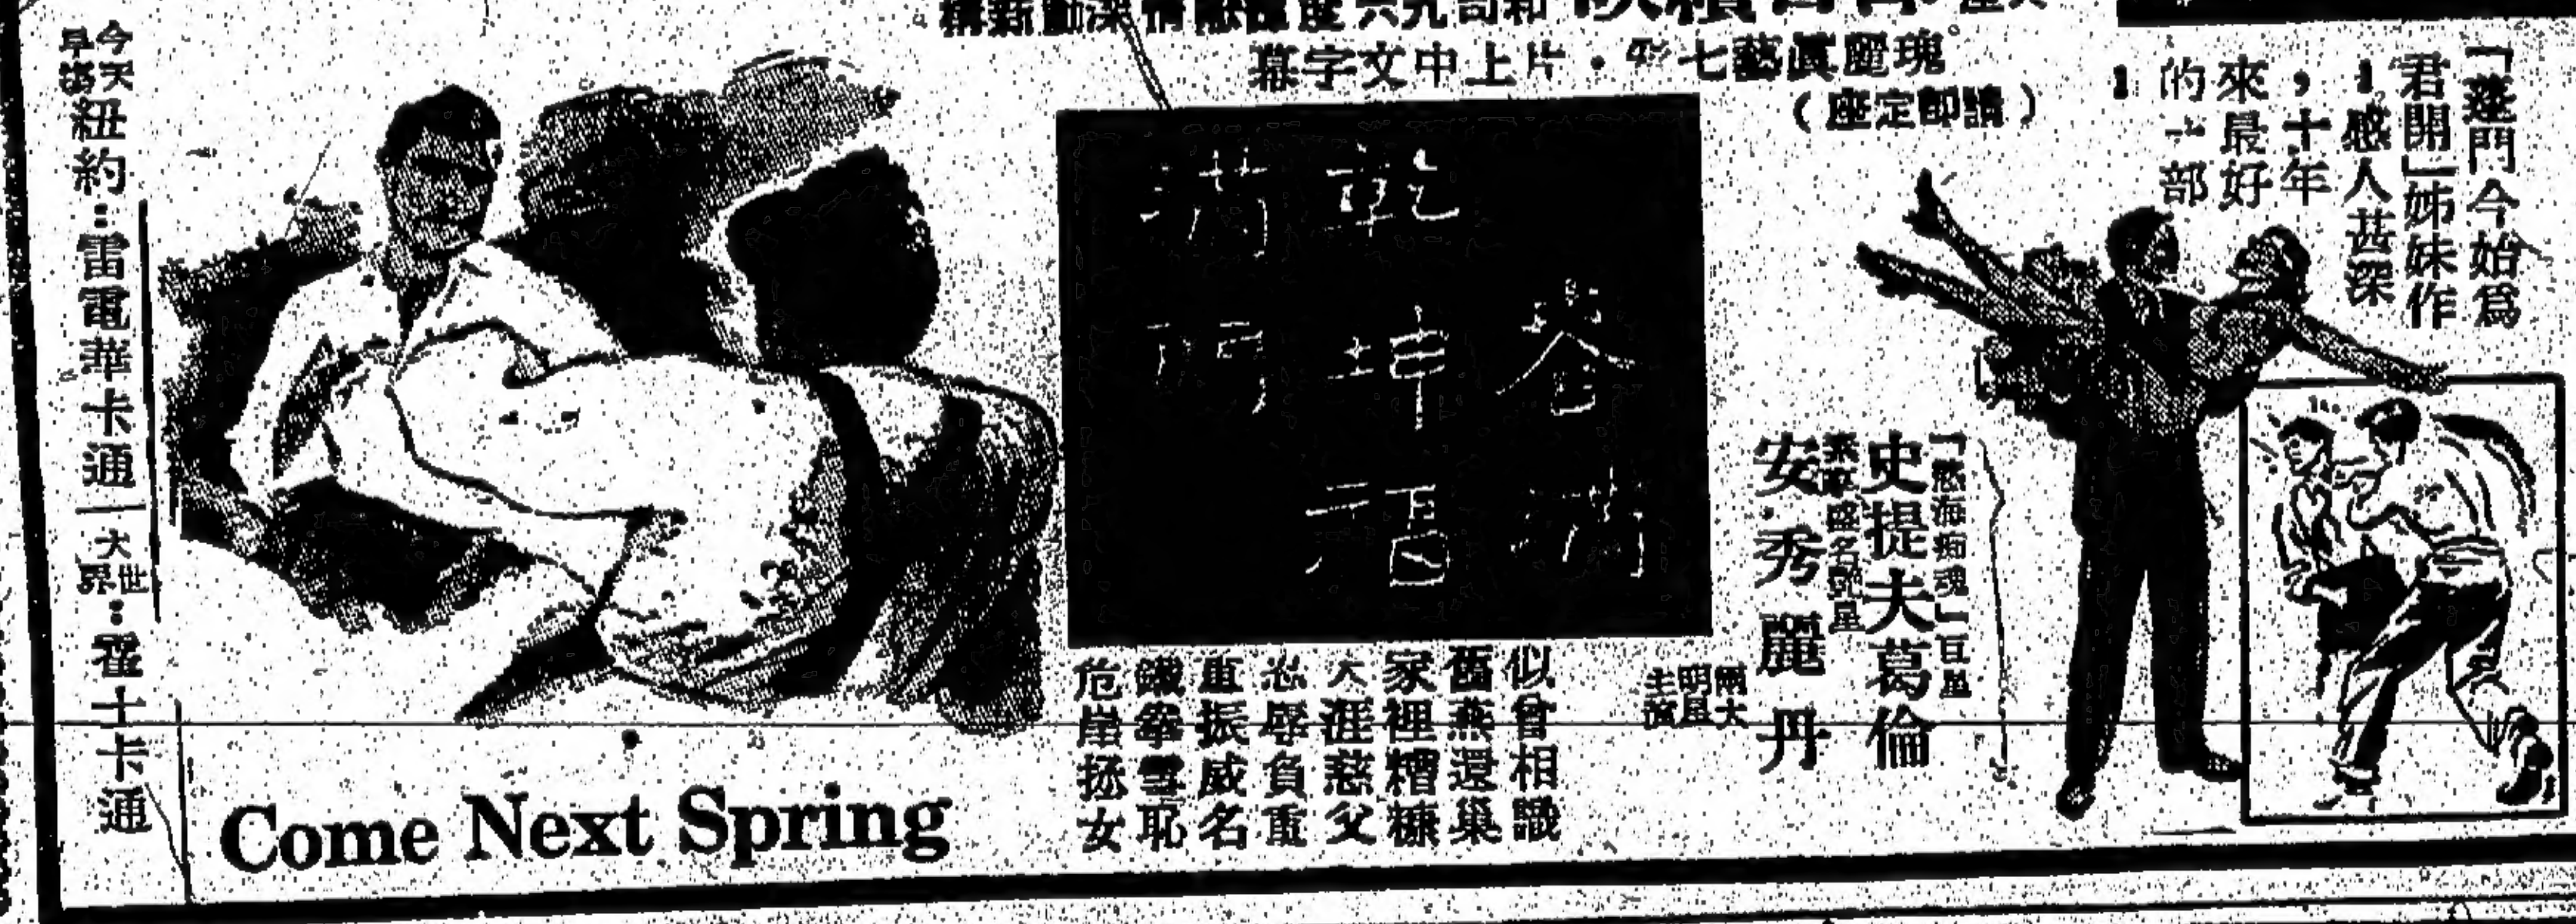 瑰麗眞藝七彩・片上中文字幕
(請即定座)
「蓬門今始爲
君開」姊妹作
!感人甚深
,十年
來最好
的一部
!
春滿
乾坤福
滿門
「慾海痴魂」巨星
史提夫葛倫
安秀麗丹
兩大
明星
主演
似曾相識
舊燕還巢
家裡糟糠
天涯慈父
忍辱負重
重振威名
鐵拳雪恥
危崖拯女
Come Next Spring
今天早場紐約:雷電華卡通|大世界:霍士卡通